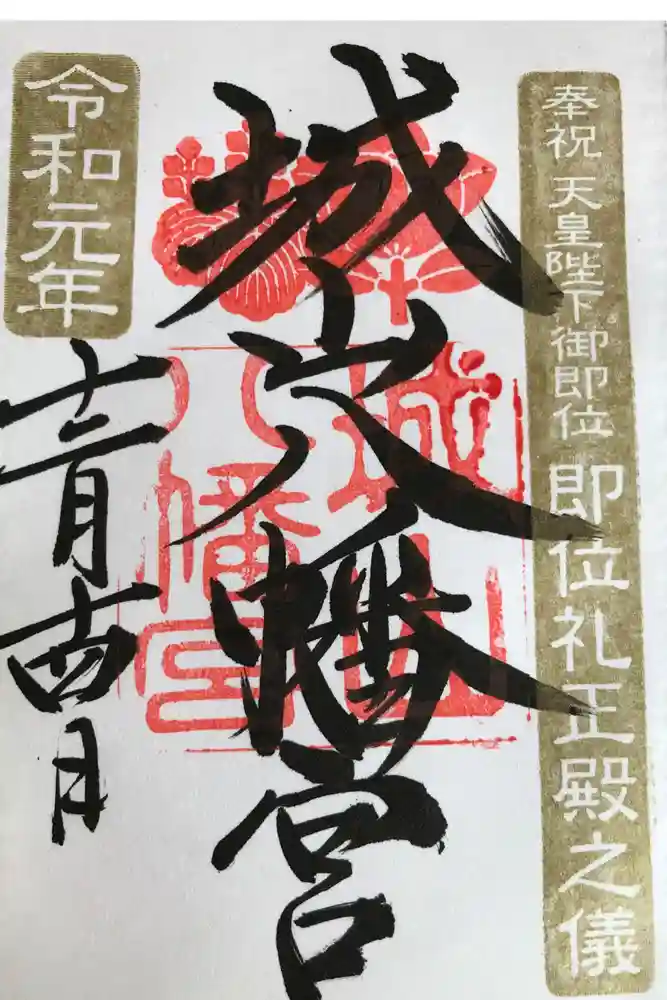 奉祝 天皇陛下御即位 即位礼正殿之儀
城山八幡宮
城山
八幡宮
令和元年
十一月十四日